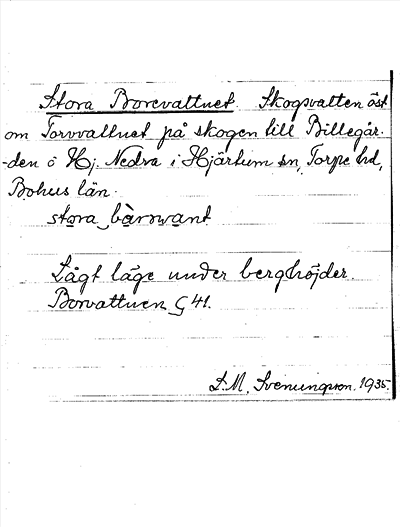 Stora Borevattnet. Skogsvatten öst
om Torvvattnet på skogen till Billegår-
-den ö Hj. Nedra i Hjärtum sn, Torpe hd,
Bohus län.
stora bårvvant
Lågt läge under berghöjder.
Borvattnen G 41.
S. M. Svenungson. 1935.